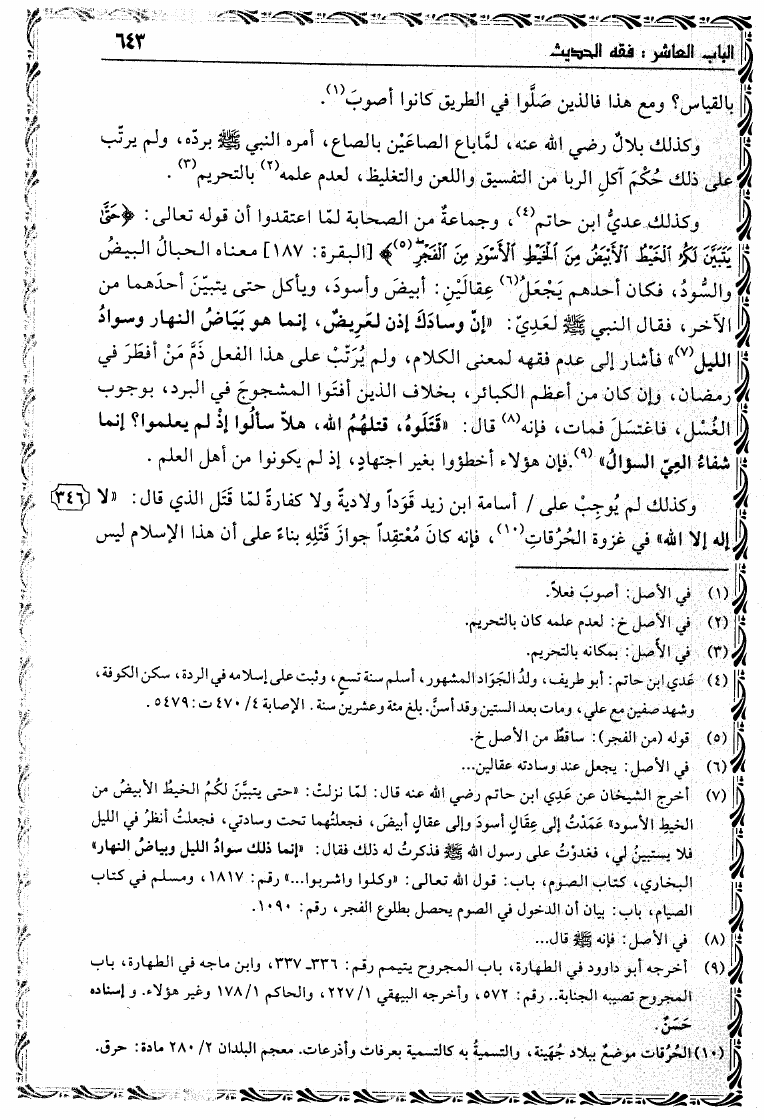 الباب العاشر : فقه الحديث ٦٤٣
بالقياس؟ ومع هذا فالذين صَلَّوا في الطريق كانوا أصوبَ(١).
وكذلك بلالٌ رضي الله عنه، لمَّاباع الصاعَيْن بالصاع، أمره النبي ﷺ بردّه، ولم يرتّب
على ذلك حُكْمَ آكلِ الربا من التفسيق واللعن والتغليظ، لعدم علمه(٢) بالتحريم(٣) .
وكذلك عديُّ ابن حاتم(٤)، وجماعةٌ من الصحابة لمّا اعتقدوا أن قوله تعالى: ﴿حَتَّىٰ
يَتَبَيَّنَ لَكُمُ الْخَيْطُ الْأَبْيَضُ مِنَ الْخَيْطِ الْأَسْوَدِ مِنَ الْفَجْرِ ۖ(٥)﴾ [البقرة: ١٨٧] معناه الحبالُ البيضُ
والسُّودُ، فكان أحدهم يَجْعَلُ(٦) عِقالَيْنِ: أبيضَ وأسودَ، ويأكل حتى يتبيّنَ أحدَهما من
الآخر، فقال النبي ﷺ لعَدِيّ: «إنّ وسادَكَ إذن لعَرِيضٌ، إنما هو بَيَاضُ النهار وسوادُ
الليل(٧)» فأشار إلى عدم فقهه لمعنى الكلام، ولم يُرَتّبْ على هذا الفعل ذَمَّ مَنْ أفطَرَ في
رمضان، وإن كان من أعظم الكبائر، بخلاف الذين أفتَوا المشجوجَ في البرد، بوجوب
الغُسْل، فاغتسَلَ فمات، فإنه(٨) قال: «قَتَلُوهُ، قتلهُمُ الله، هلاّ سألُوا إذْ لم يعلموا؟ إنما
شفاءُ العِيّ السؤالُ» (٩).فإن هؤلاء أخطؤوا بغير اجتهادٍ، إذ لم يكونوا من أهل العلم .
وكذلك لم يُوجِبْ على / أسامة ابن زيد قَوَداً ولاديةً ولا كفارةً لمّا قَتَل الذي قال: «لا ٣٤٦
إله إلا الله» في غزوة الحُرُقاتِ(١٠)، فإنه كانَ مُعْتقِداً جوازَ قَتْلِهِ بناءً على أن هذا الإسلام ليس
(١) في الأصل: أصوبَ فعلاً.
(٢) في الأصل خ: لعدم علمه كان بالتحريم.
(٣) في الأصل: بمكانه بالتحريم.
(٤) عَدي ابن حاتم: أبو طريف، ولدُ الجَوَاد المشهور، أسلم سنة تسعٍ، وثبت على إسلامه في الردة، سكن الكوفة،
وشهد صفين مع علي، ومات بعد الستين وقد أسنّ. بلغ مئة وعشرين سنة . الإصابة ٤/ ٤٧٠ ت: ٥٤٧٩ .
(٥) قوله (من الفجر): ساقطٌ من الأصل خ.
(٦) في الأصل: يجعل عند وسادته عقالين...
(٧) أخرج الشيخان عن عَدِي ابن حاتم رضي الله عنه قال: لمّا نزلتْ: «حتى يتبيَّنَ لكُمُ الخيطُ الأبيضُ من
الخيط الأسود» عَمَدْتُ إلى عِقَالٍ أسودَ وإلى عقالٍ أبيضَ، فجعلتُهما تحت وسادتي، فجعلتُ أنظرُ في الليل
فلا يستبينُ لي، فغدوْتُ على رسول الله ﷺ فذكرتُ له ذلك فقال: «إنما ذلك سوادُ الليل وبياضُ النهار»
البخاري، كتاب الصوم، باب: قول الله تعالى: «وكلوا واشربوا...» رقم: ١٨١٧، ومسلم في كتاب
الصيام، باب: بيان أن الدخول في الصوم يحصل بطلوع الفجر، رقم: ١٠٩٠.
(٨) في الأصل: فإنه ﷺ قال...
(٩) أخرجه أبو داوود في الطهارة، باب المجروح يتيمم رقم: ٣٣٦ـ ٣٣٧، وابن ماجه في الطهارة، باب
المجروح تصيبه الجنابة.. رقم: ٥٧٢، وأخرجه البيهقي ٢٢٧/١، والحاكم ١٧٨/١ وغير هؤلاء. و إسناده
حَسَنٌ.
(١٠) الحُرُقات موضعٌ ببلاد جُهَينة، والتسميةُ به كالتسمية بعرفات وأذرعات. معجم البلدان ٢٨٠/٢ مادة: حرق.